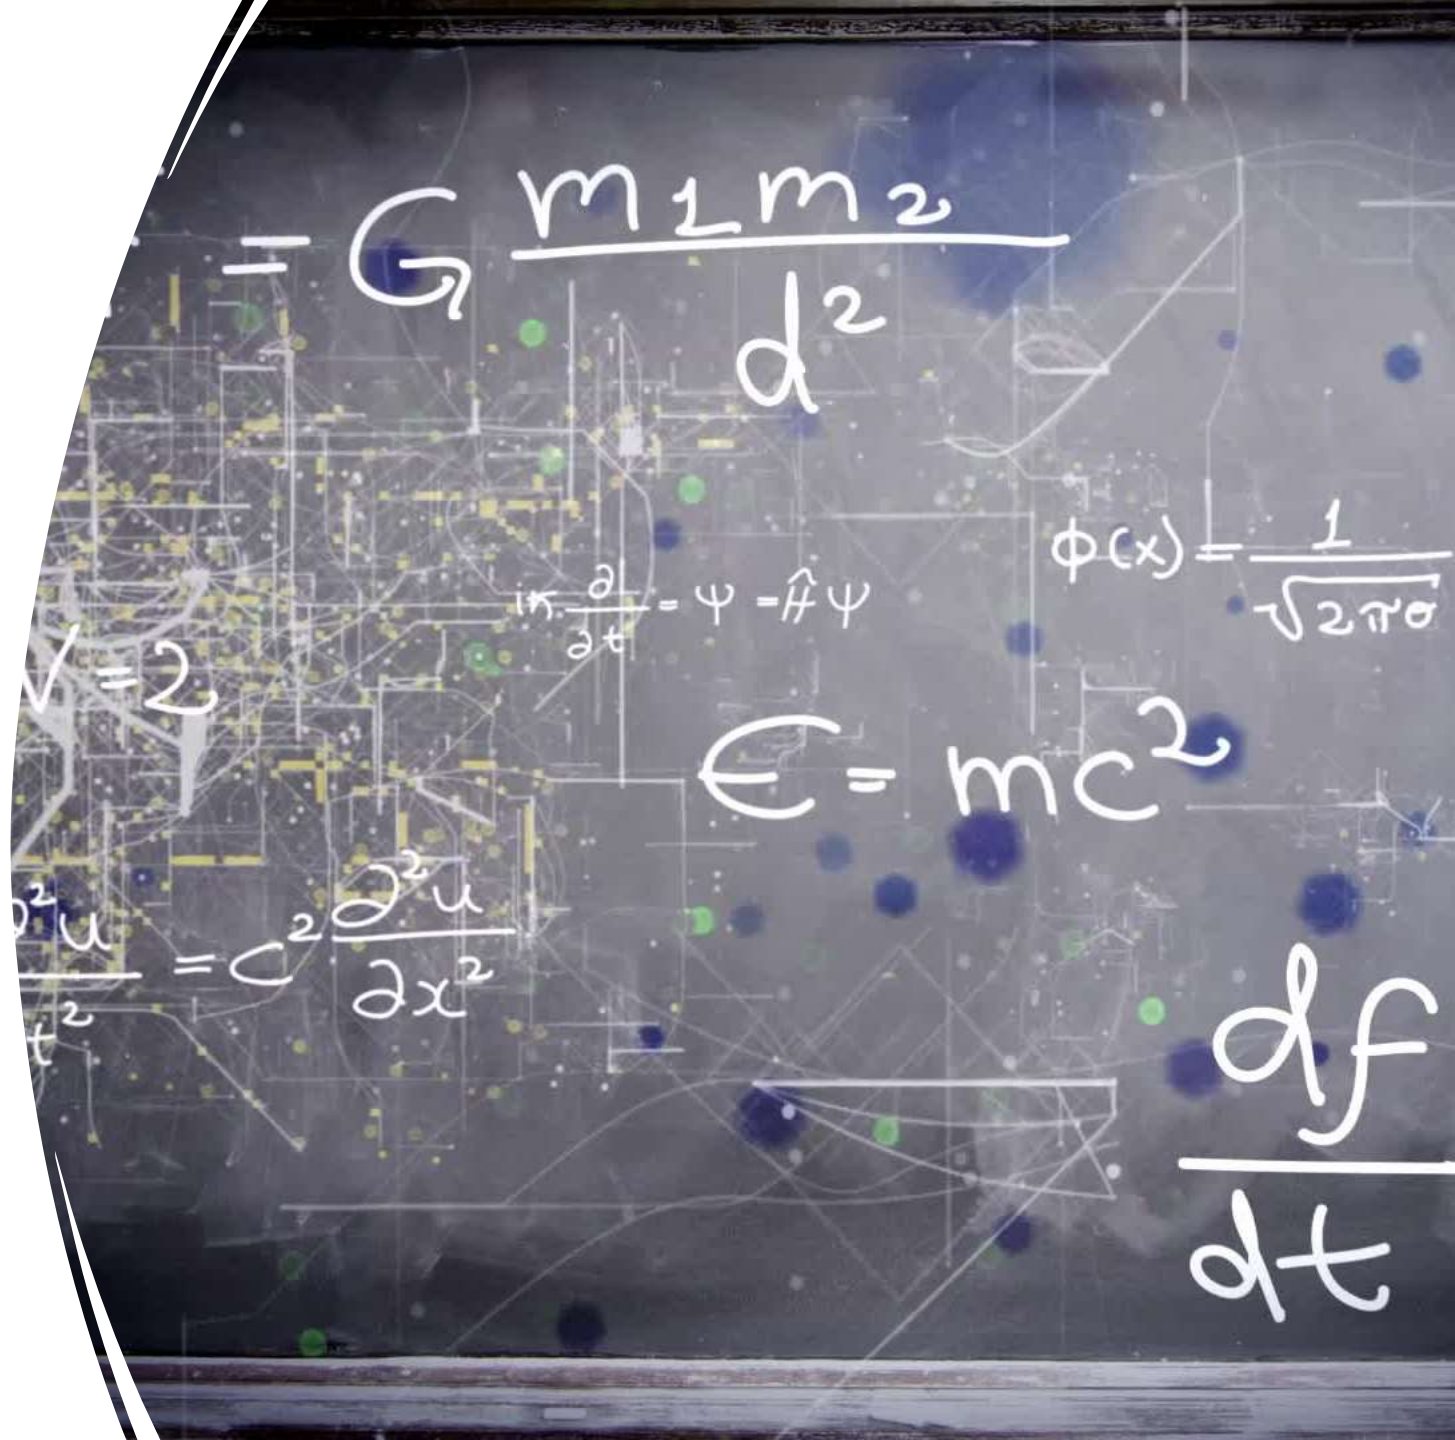 = G m1m2 / d²
φ(x) = 1 / √2πσ
iħ ∂/∂t = Ψ = ĤΨ
V = 2
E = mc²
²u / t² = c² ∂²u / ∂x²
df / dt